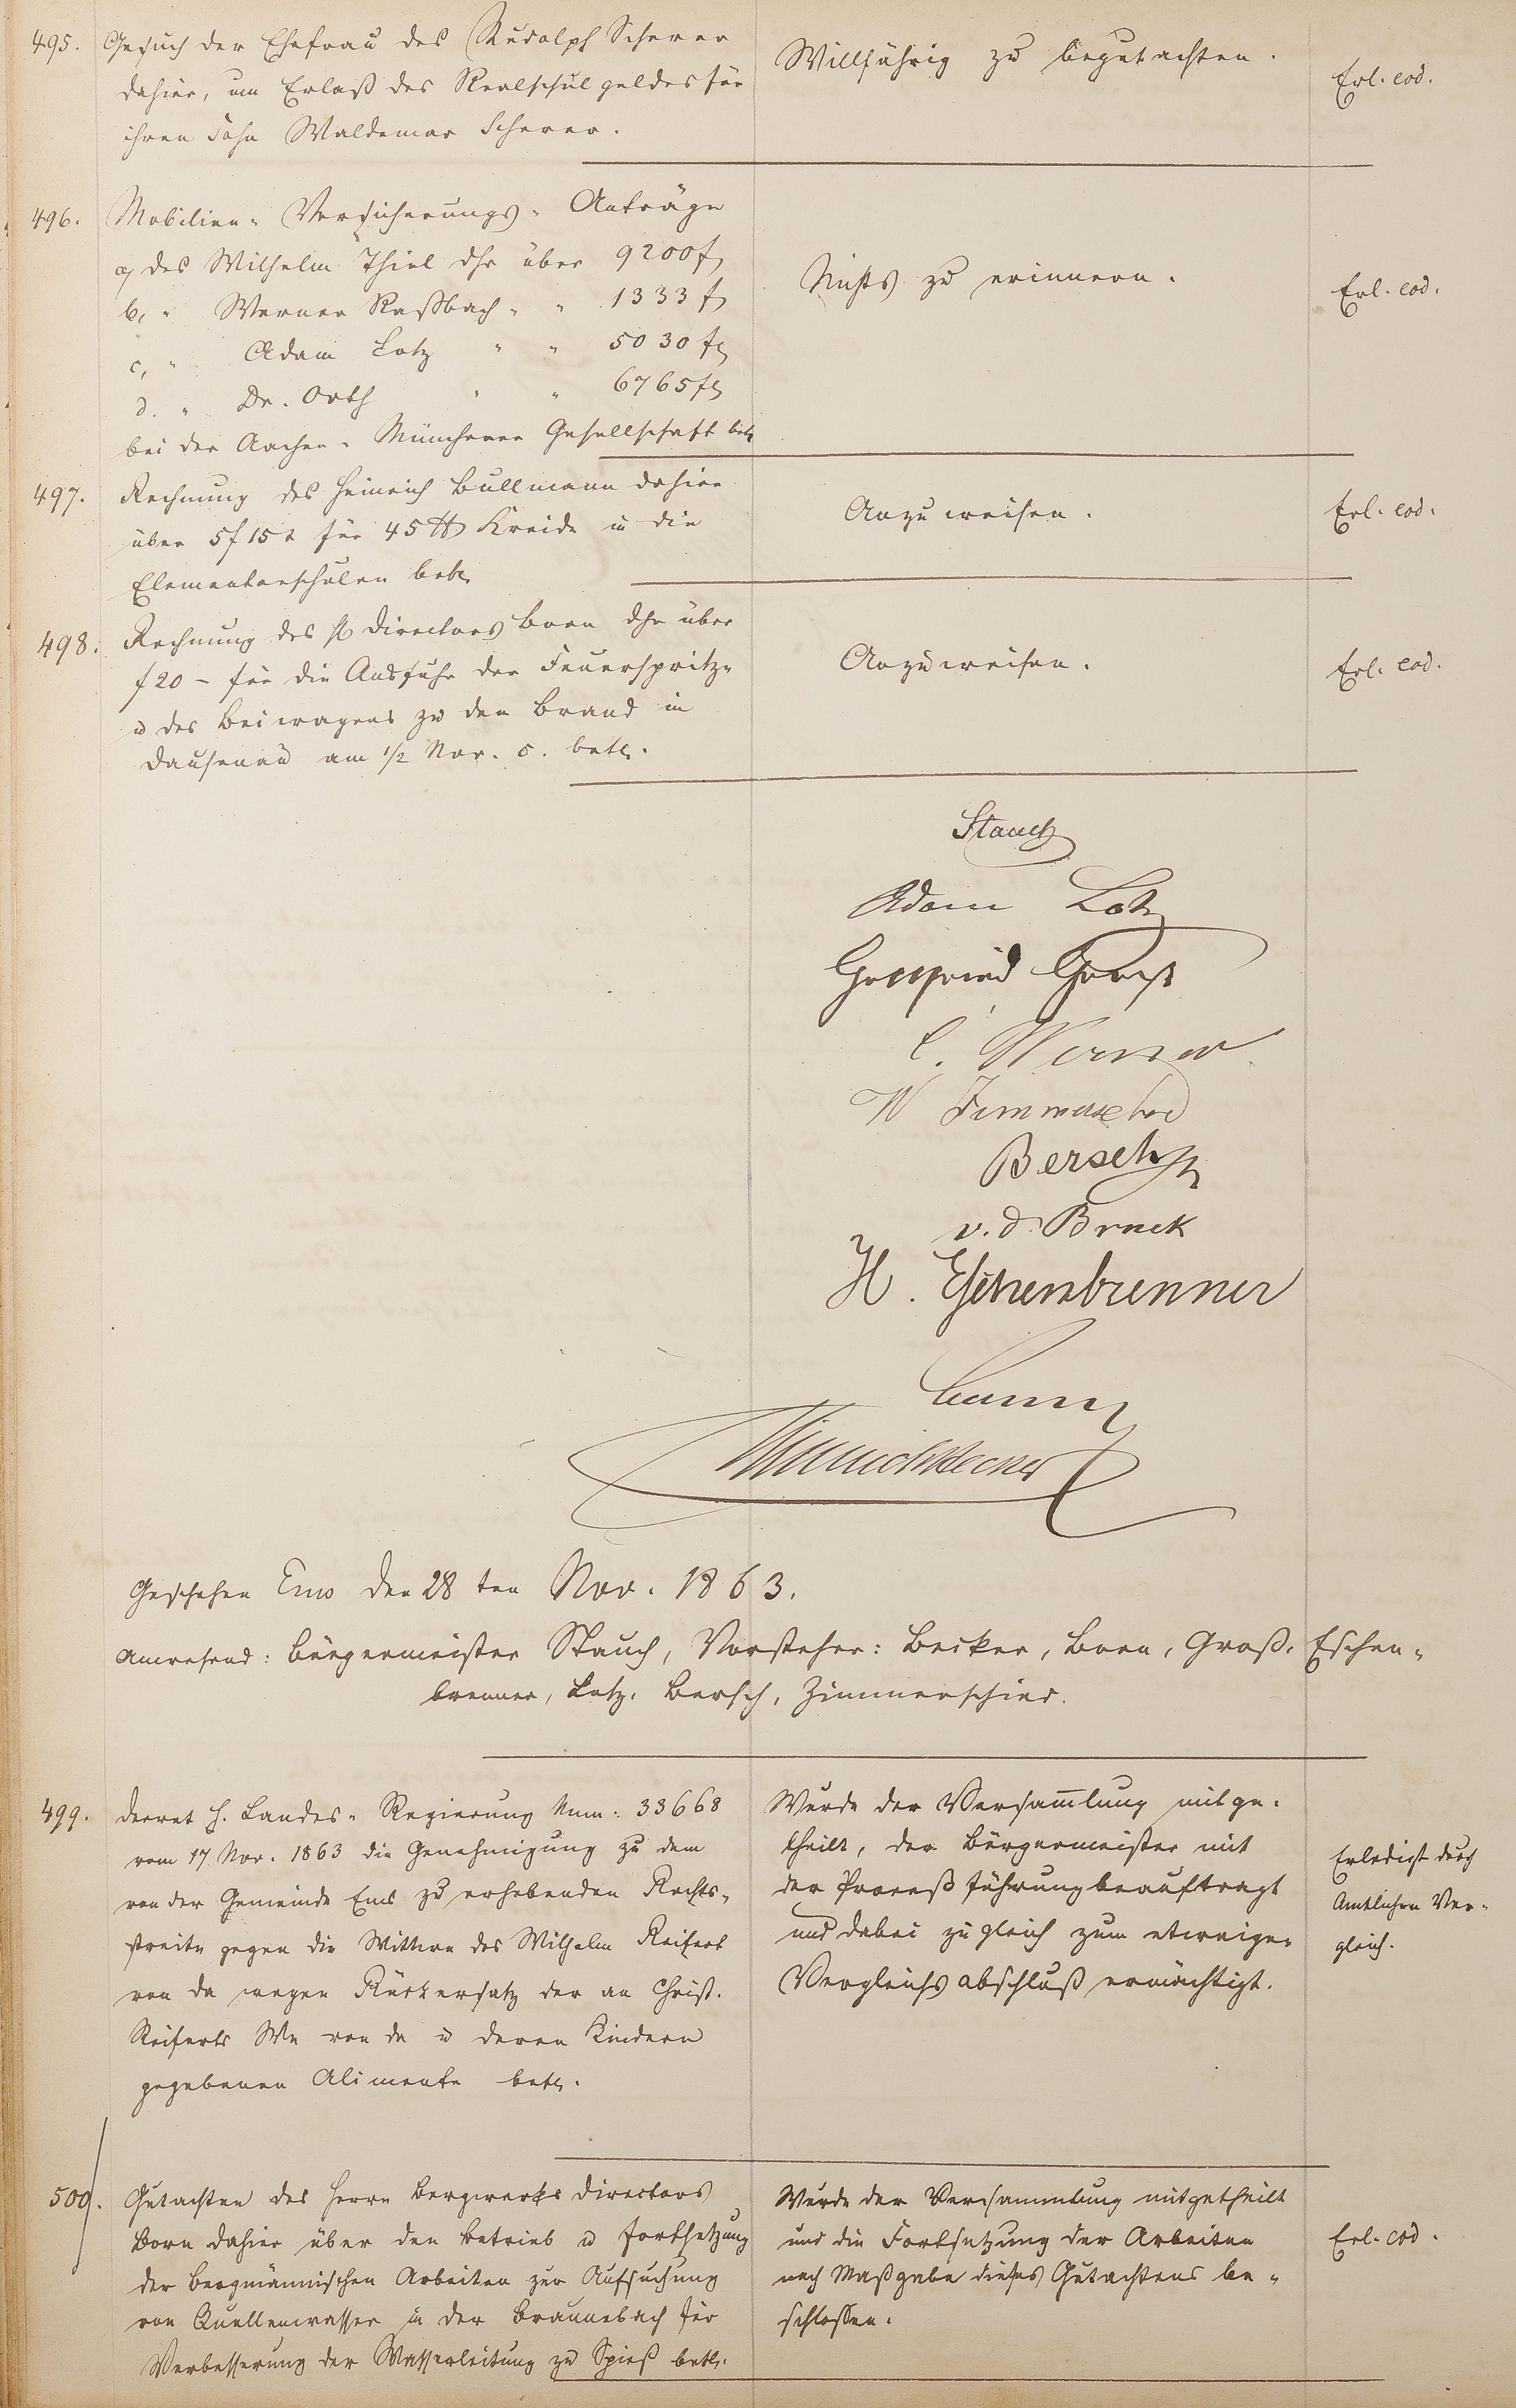 495. Gesuch der Ehefrau des Rudolph Scherer
dahier, um Erlaß des Realschulgeldes für
ihren Sohn Waldemar Scherer.
Willfährig zu begutachten.
Erl. eod.
496. Mobilien-Versicherungs-Anträge
a, des Wilhelm Thiel dhr über 9200 f
b, " Werner Raßbach " " 1333 f
c, " Adam Lotz " " 5030 f
d. " Dr. Orth " " 6765 f
bei der Aachen-Münchener Gesellschaft betr
Nichts zu erinnern.
Erl. eod.
497. Rechnung des Heinrich Bullmann dahier
über 5f 15x für 45 ℔ Kreide in die
Elementarschulen betr.
Anzuweisen.
Erl. eod.
498. Rechnung des Directors Born dhr über
f 20 - für die Ausfuhr der Feuerspritze
u des Beiwagens zu den Brand in
Dausenau am 1/2 Nov. c. betr.
Anzuweisen.
Erl. eod.
Stauch
Adam Lotz
Gottfried Groß
C. Werner
W Zimmerschied
Bersch
v. d. Bruck
H. Eschenbrenner
Born
Heinrich Becker
Geschehen Ems den 28ten Nov. 1863.
Anwesend: Bürgermeister Stauch, Vorsteher: Becker, Born, Groß, Eschen-
brenner, Lotz, Bersch, Zimmerschied.
499. Decret H. Landes-Regierung Num: 33668
vom 17. Nov. 1863 die Genehmigung zu dem
von der Gemeinde Ems zu erhebenden Rechts-
streite gegen die Wittwe des Wilhelm Reifert
von da wegen Rückersatz der an Christ.
Reiferts We von da u deren Kindern
gegebenen Alimente betr.
Wurde der Versammlung mitge-
theilt, der Bürgermeister mit
der Proceßführung beauftragt
und dabei zugleich zum etwaigen
Vergleichsabschluß ermächtigt.
Erledigt durch
Amtlichen Ver-
gleich.
500. Gutachten des Herrn Bergwerks Directors
Born dahier über den Betrieb u Fortsetzung
der bergmännischen Arbeiten zur Aufsuchung
von Quellenwasser in der Braunebach für
Verbesserung der Wasserleitung zu Spieß betr.
Wurde der Versammlung mitgetheilt
und die Fortsetzung der Arbeiten
nach Maßgabe dieses Gutachtens be-
schlossen.
Erl. eod.